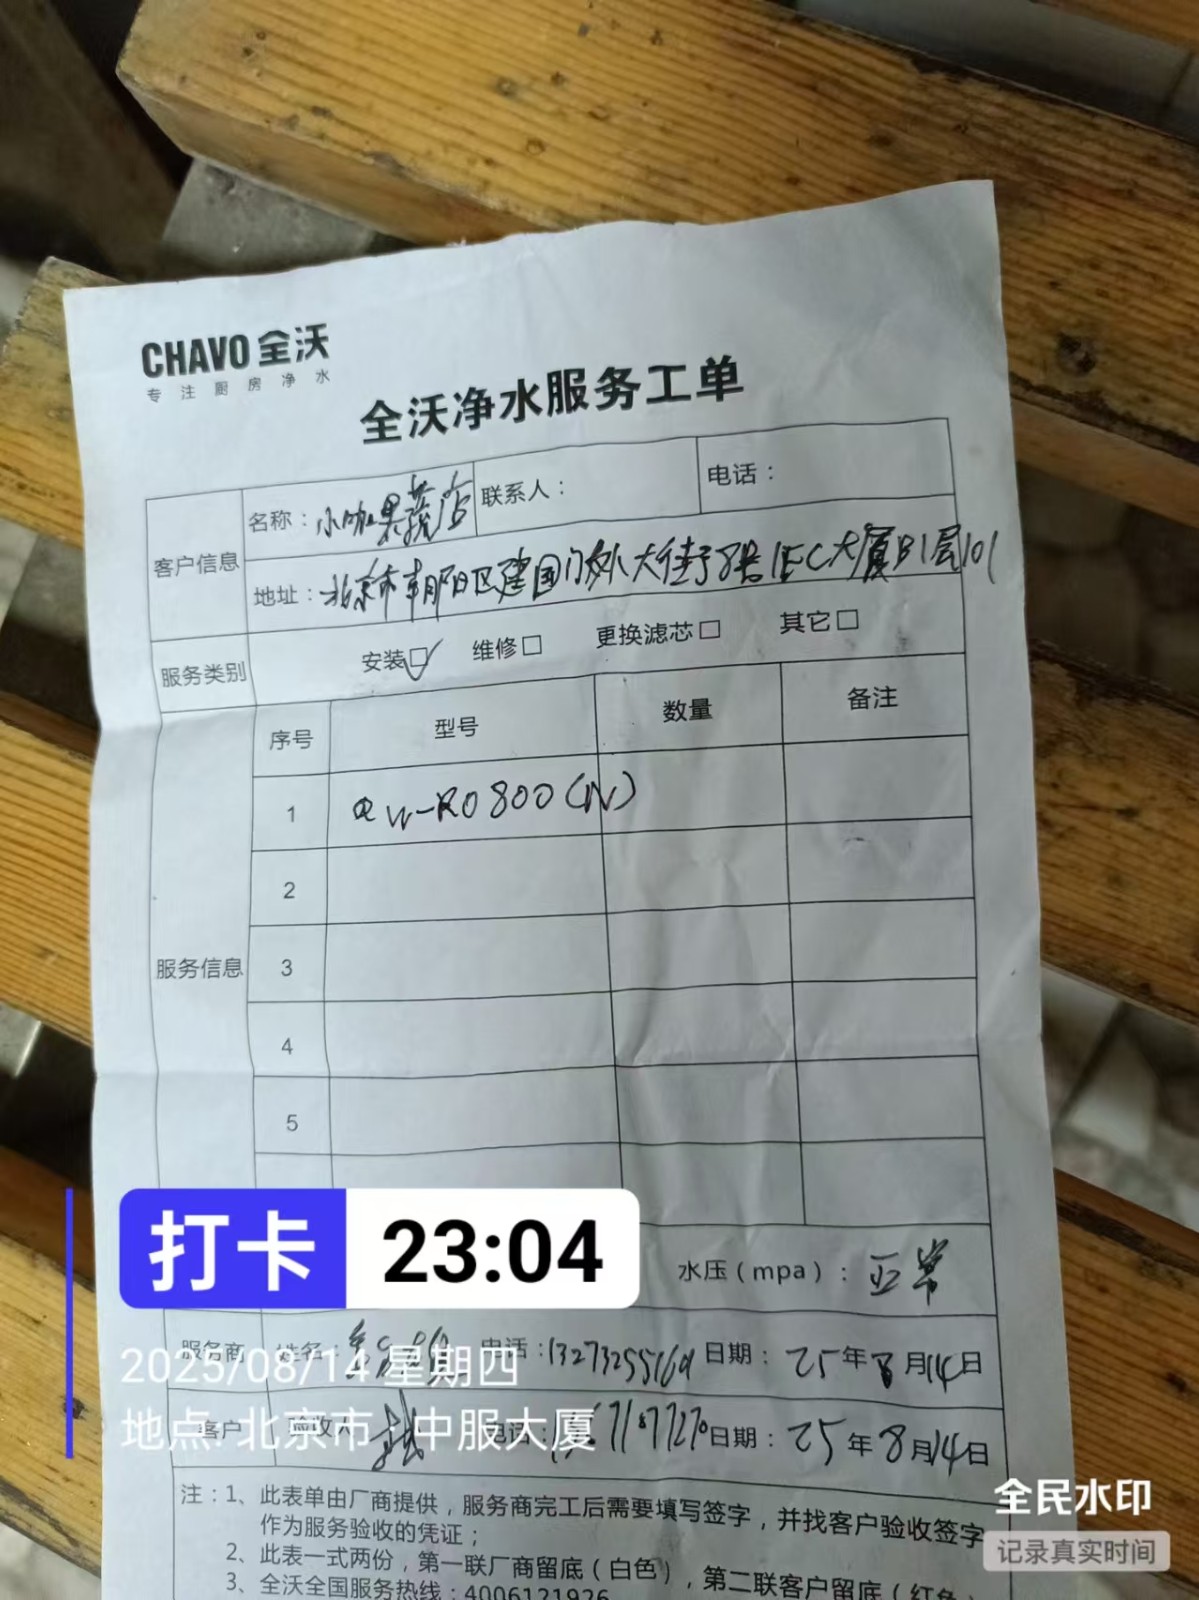 CHAVO 全沃
专注厨房净水
全沃净水服务工单
客户信息
名称：小咖果蔬店 联系人： 电话：
地址：北京市朝阳区建国门外大街8号IFC大厦B1层101
服务类别 安装☑ 维修□ 更换滤芯□ 其它□
服务信息
序号 型号 数量 备注
1 QW-RO800(N)
2
3
4
5
打卡 23:04
水压（mpa）：正常
服务商 姓名： 电话：13273255169 日期：25年8月14日
2025/08/14 星期四
客户 验收人 电话： 日期：25年8月14日
地点：北京市·中服大厦
注：1、此表单由厂商提供，服务商完工后需要填写签字，并找客户验收签字
作为服务验收的凭证；
2、此表一式两份，第一联厂商留底（白色），第二联客户留底（红色）
3、全沃全国服务热线：4006121926
全民水印
记录真实时间